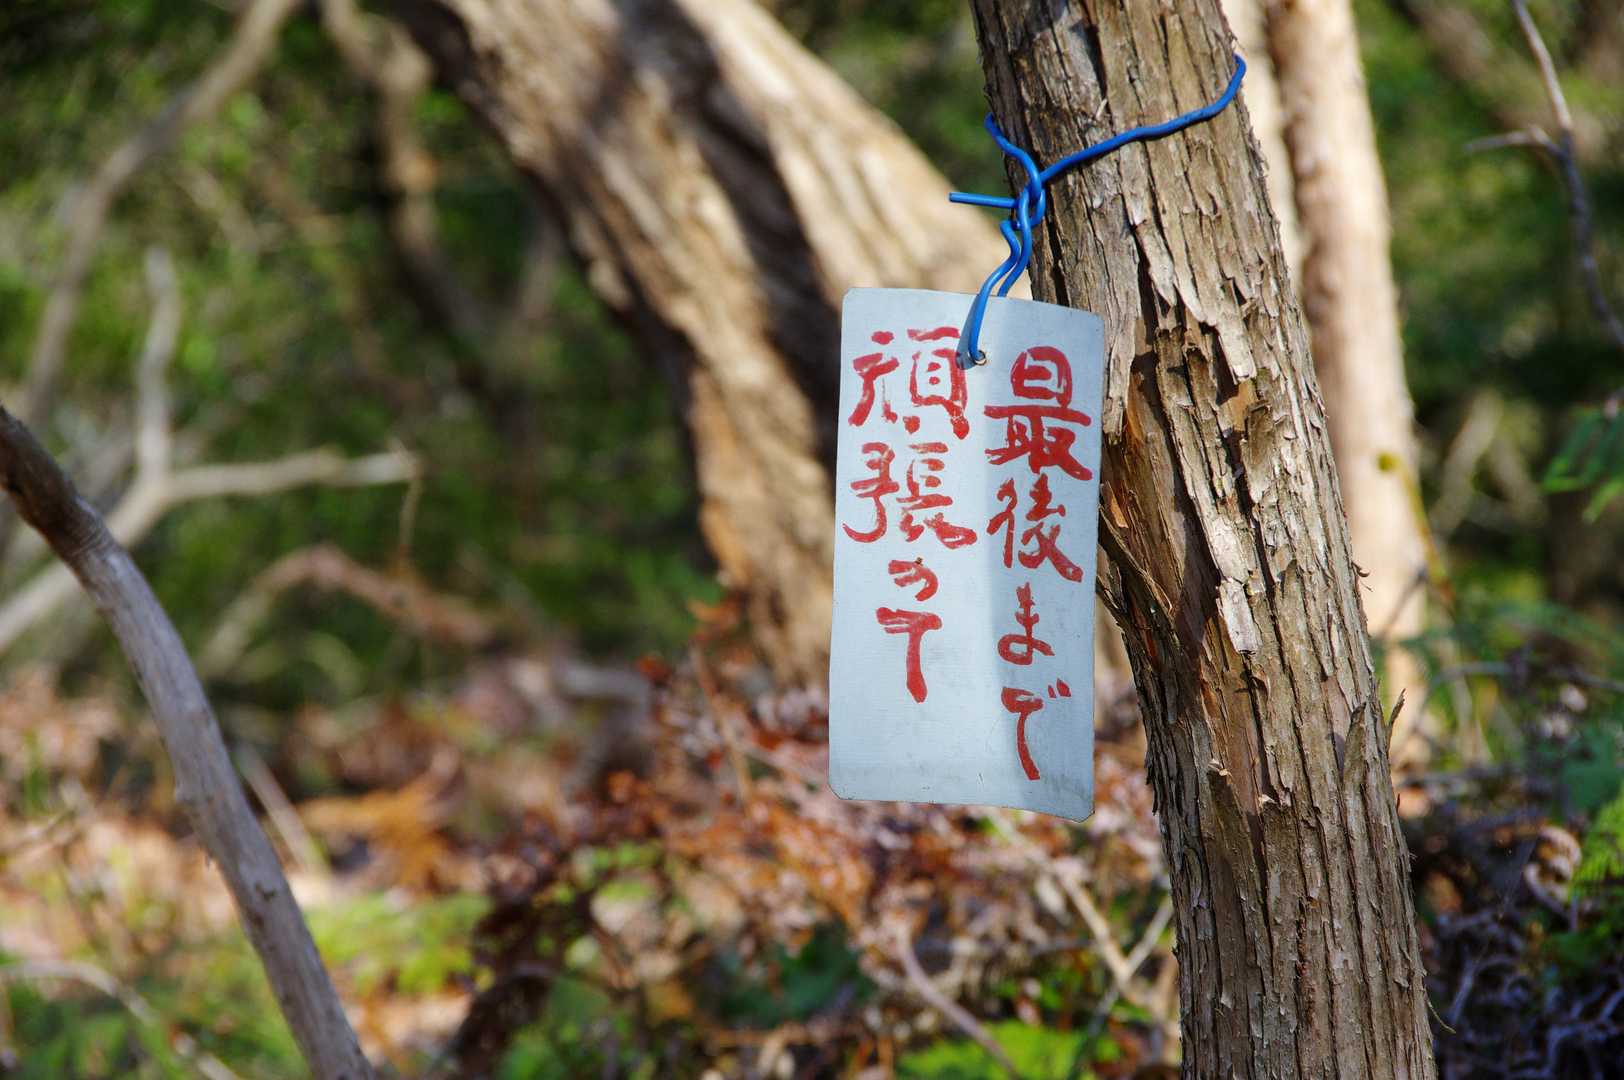 最後まで
頑張って